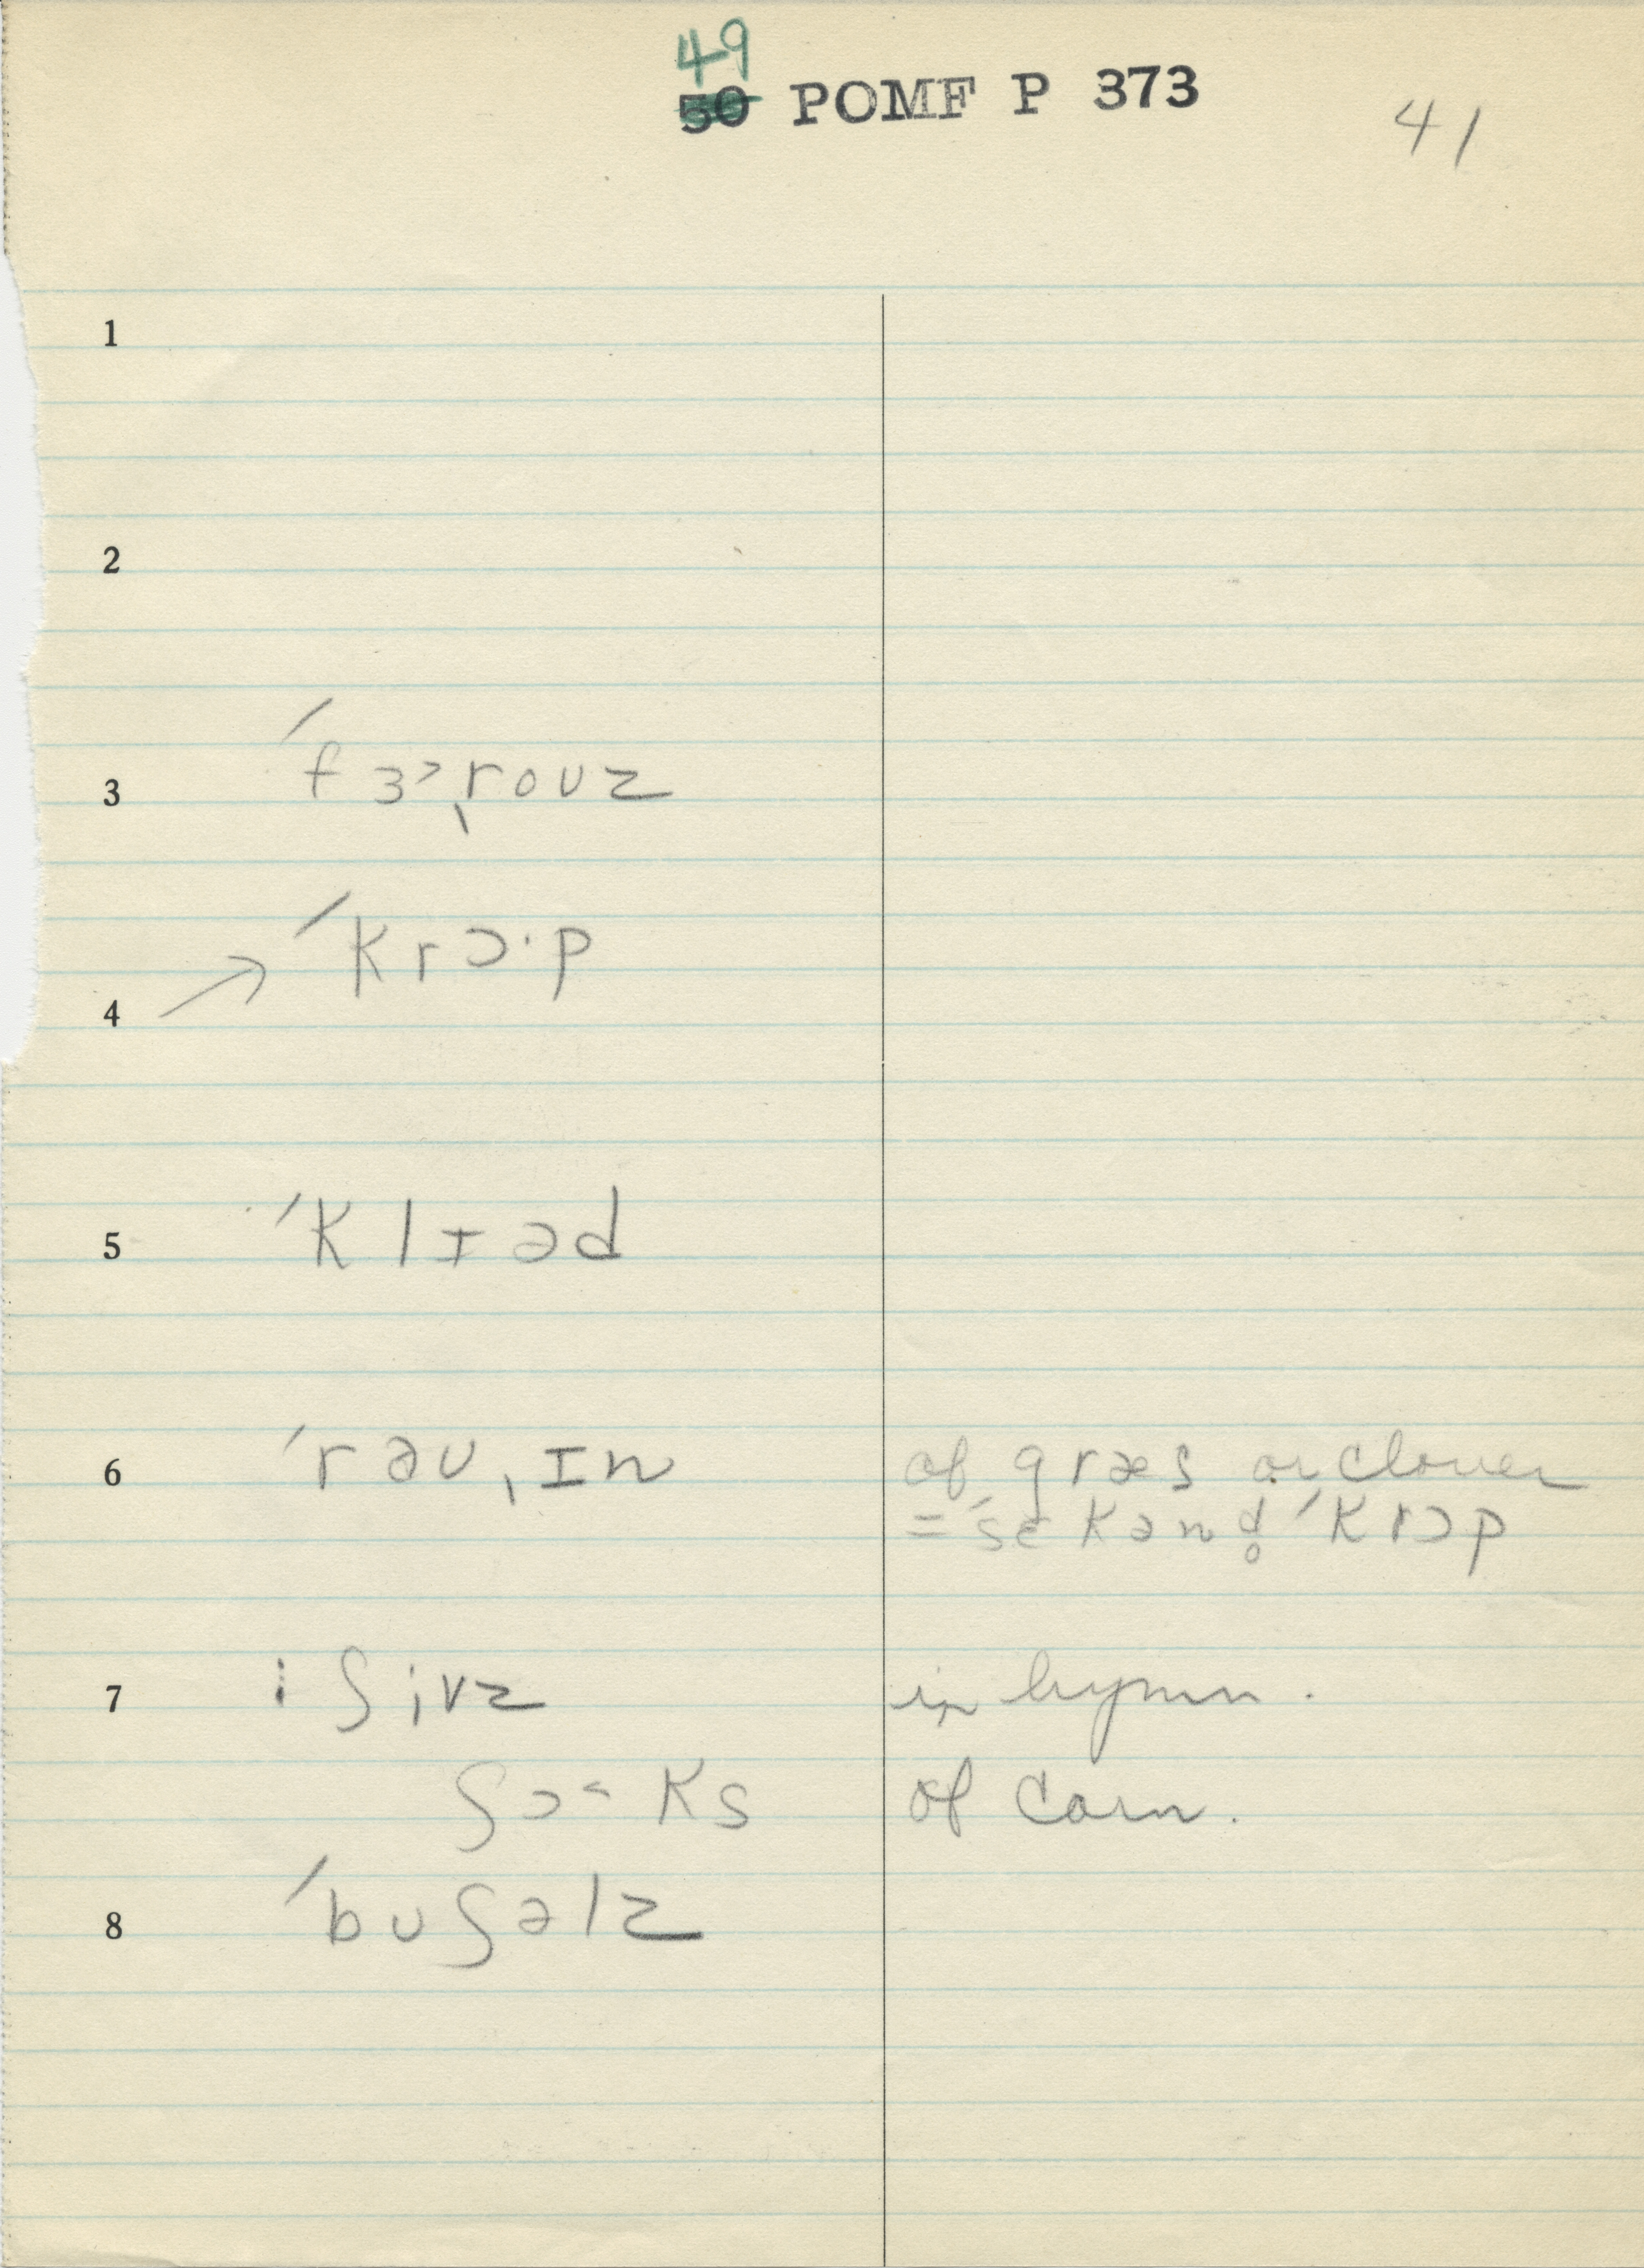 49
50 POMF P 373
41
1
2
3 ˈfɜ˞ˌroʊz
4 → ˈkrɔ·p
5 ˈklɪəd
6 ˈrəʊˌɪn of græs or clover
= ˈsɛkənd̥ ˈkrɔp
7 ⁝ ʃivz in hymn.
ʃɔ˂ks of corn.
8 ˈbuʃəlz